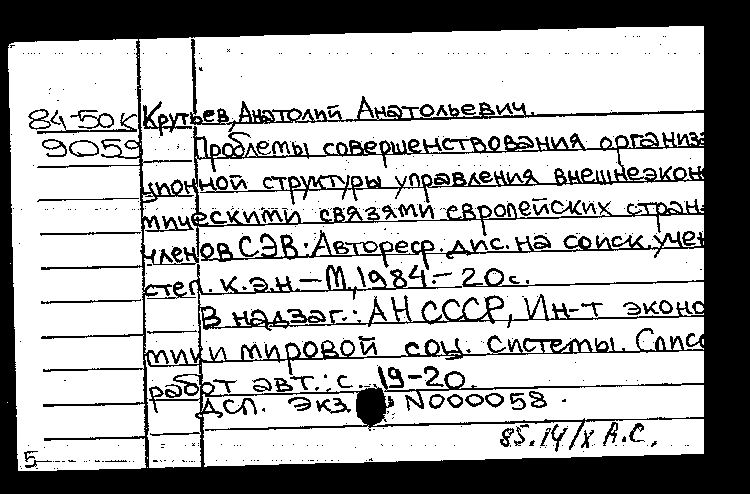 84-50к Крутьев, Анатолий Анатольевич.
9059 Проблемы совершенствования организа
ционной структуры управления внешнеэконо
мическими связями европейских стран-
членов СЭВ: Автореф. дис. на соиск. учен
степ. к.э.н. - М, 1984. - 20с.
В надзаг.: АН СССР, Ин-т эконо
мики мировой соц. системы. Списо
работ авт.: с. 19-20.
ДСП. Экз. N000058.
85.14/X А.С.
5